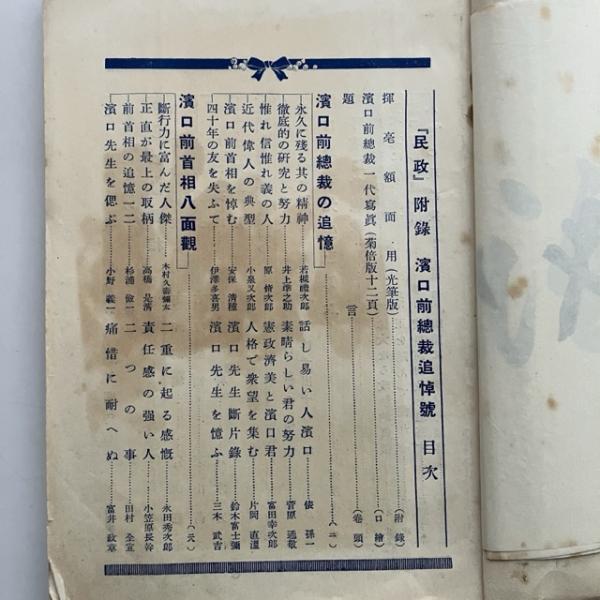 『民政』附錄 濱口前總裁追悼號 目次
揮毫額面用(光筆版)……(附錄)
濱口前總裁一代寫眞(菊倍版十二頁)……(口繪)
題言……(卷頭)
濱口前總裁の追憶……(二)
永久に殘る其の精神……若槻禮次郎
話し易い人濱口……俵 孫一
徹底的の硏究と努力……井上準之助
素晴らしい君の努力……菅原 通敬
惟れ信惟れ義の人……原 脩次郎
憲政濟美と濱口君……富田幸次郎
近代偉人の典型……小泉又次郎
人格で衆望を集む……片岡 直溫
濱口前首相を悼む……安保 淸種
濱口先生斷片錄……鈴木富士彌
四十年の友を失ふて……伊澤多喜男
濱口先生を憶ふ……三木 武吉
濱口前首相八面觀……(元)
斷行力に富んだ人傑……木村久壽彌太
二重に起る感慨……永田秀次郎
正直が最上の取柄……高橋 是淸
責任感の强い人……小笠原長幹
前首相の追憶一二……杉浦 儉一
二つの事……田村 全宣
濱口先生を偲ぶ……小野 義一
痛惜に耐へぬ……富井 政章